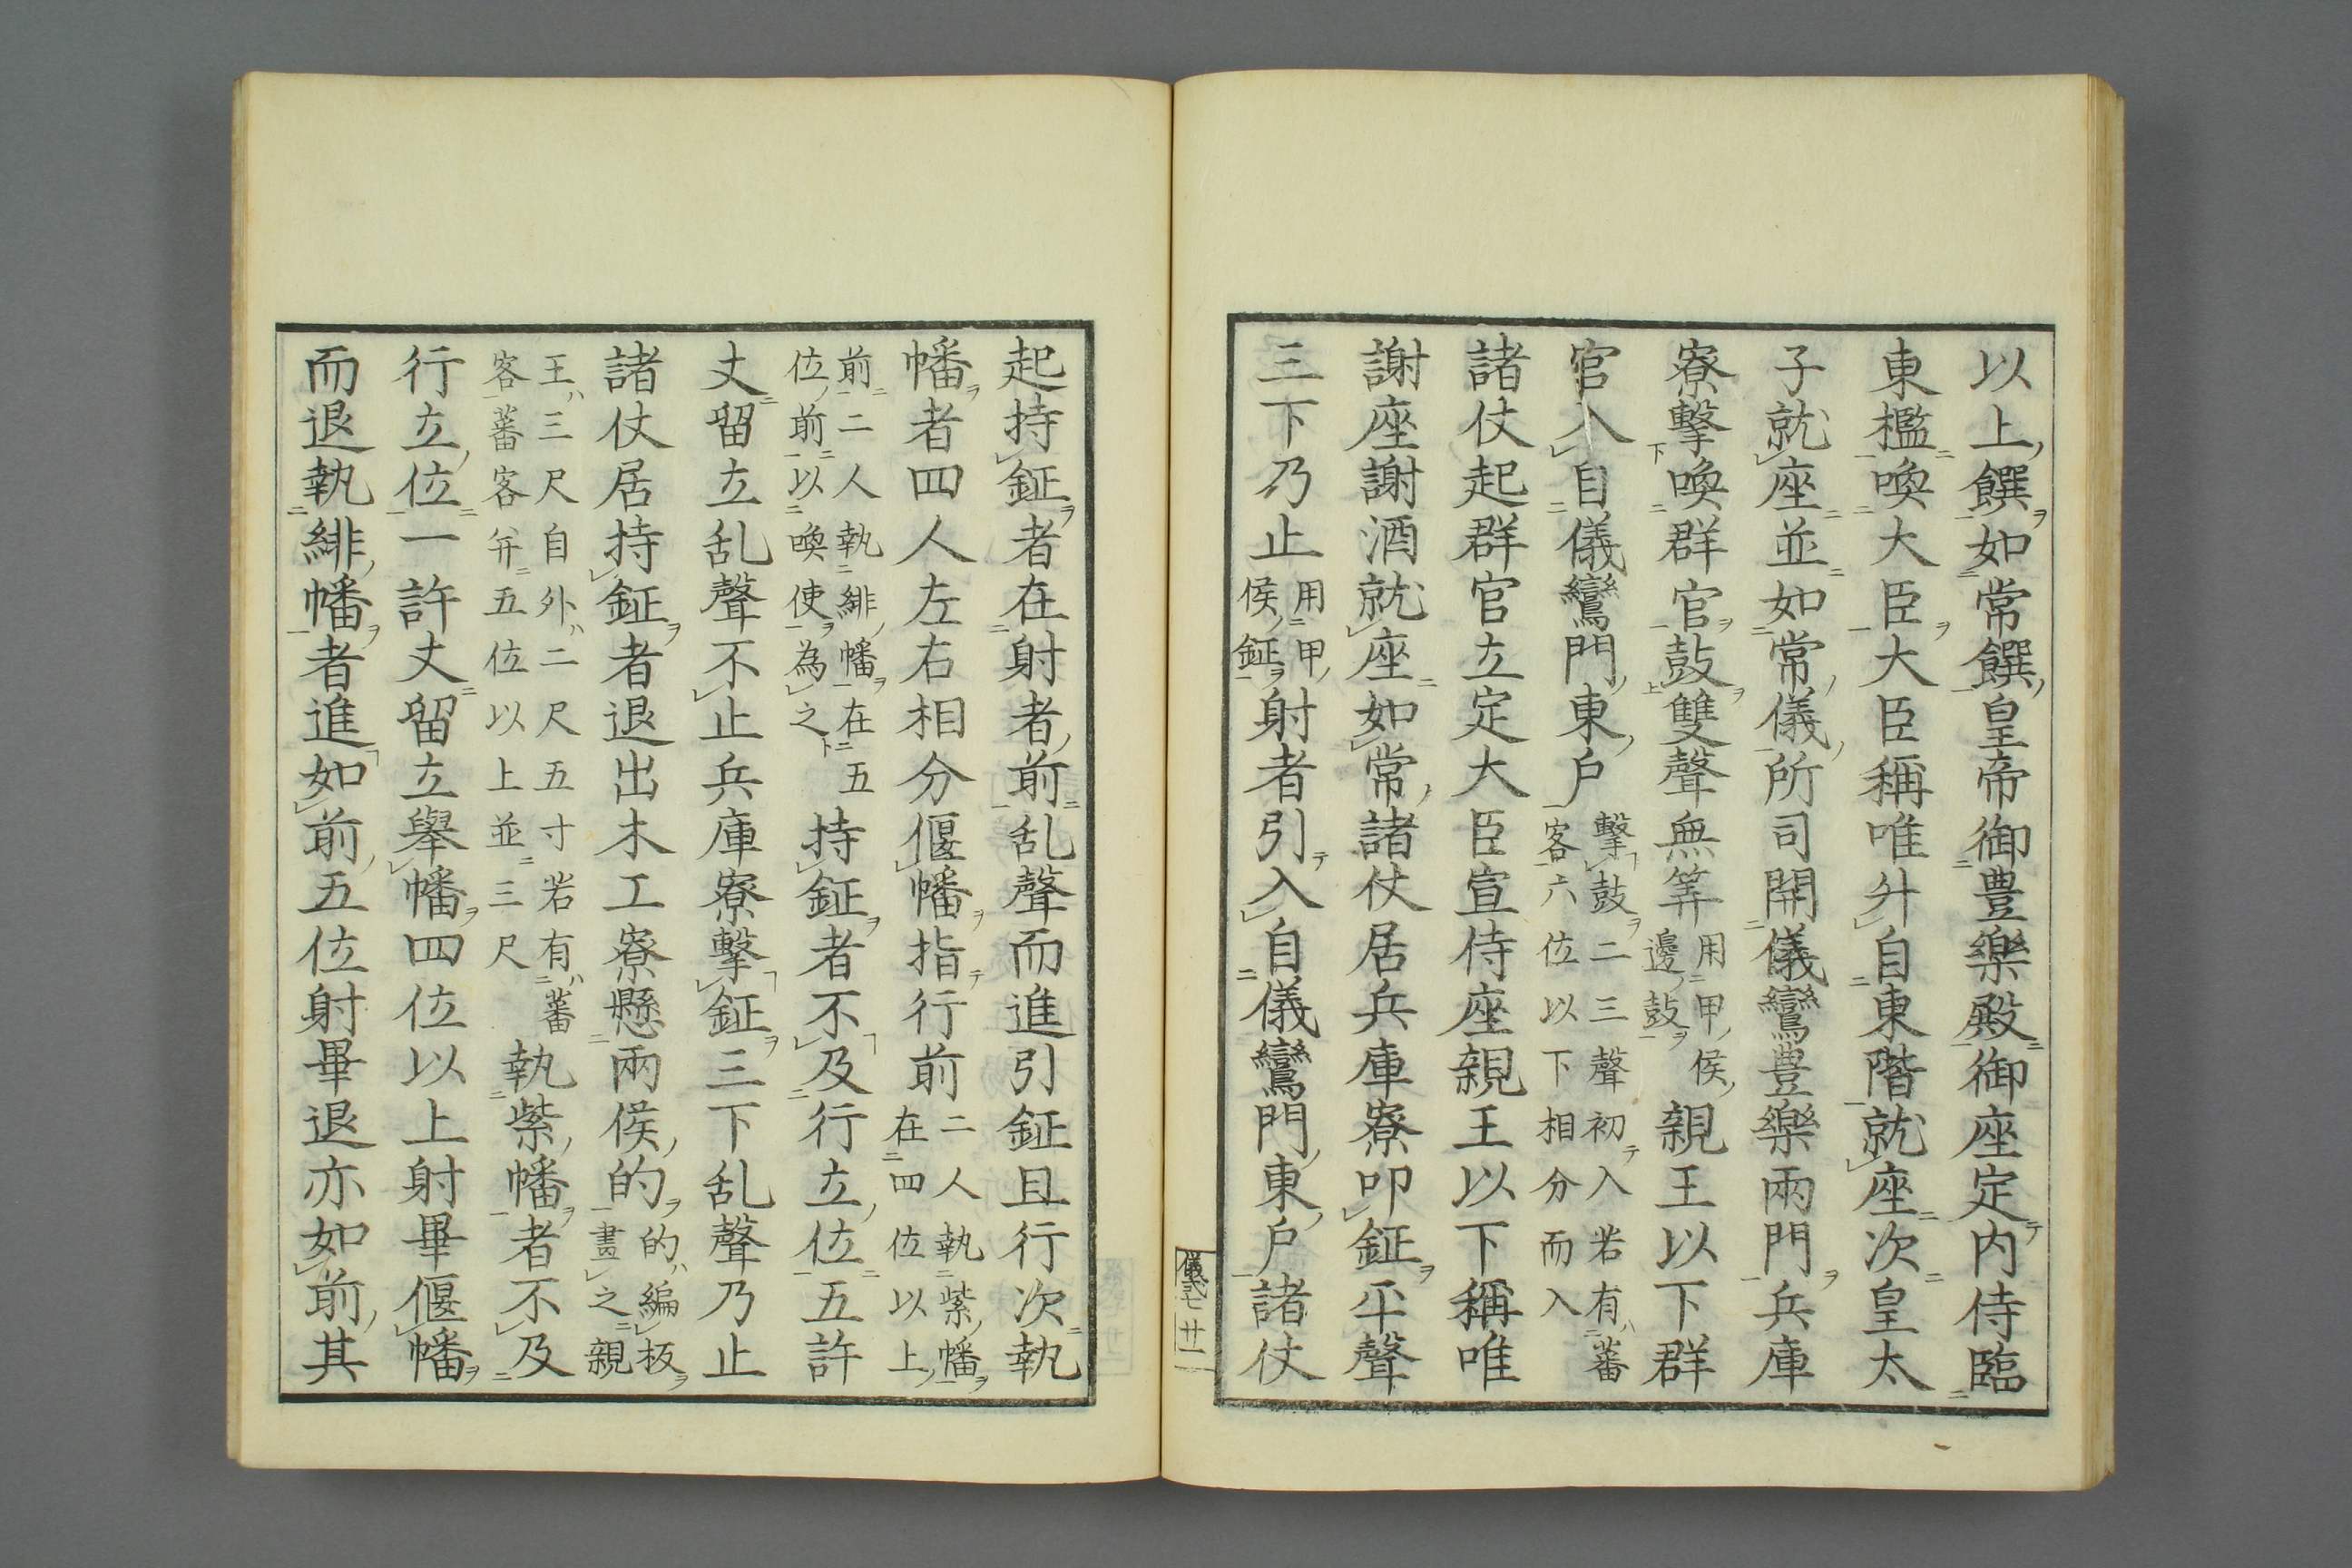 以上饌如常饌皇帝御豊樂殿御座定内侍臨
東檻喚大臣大臣稱唯升自東階就座次皇太
子就座並如常儀所司開儀鸞豊樂兩門兵庫
寮擊喚群官鼓雙聲無筭用甲侯邊鼓親王以下群
官入自儀鸞門東戶擊鼓二三聲初入若有蕃客六位以下相分而入
諸仗起群官立定大臣宣侍座親王以下稱唯
謝座謝酒就座如常諸仗居兵庫寮叩鉦平聲
三下乃止用甲侯鉦射者引入自儀鸞門東戶諸仗
儀式七 廿一
起持鉦者在射者前乱聲而進引鉦且行次執
幡者四人左右相分偃幡指行前二人執紫幡在四位以上
前二人執緋幡在五位前以喚使為之持鉦者不及行立位五許
丈留立乱聲不止兵庫寮擊鉦三下乱聲乃止
諸仗居持鉦者退出木工寮懸兩侯的的編板畫之親
王三尺自外二尺五寸若有蕃客蕃客并五位以上並三尺執紫幡者不及
行立位一許丈留立舉幡四位以上射畢偃幡
而退執緋幡者進如前五位射畢退亦如前其